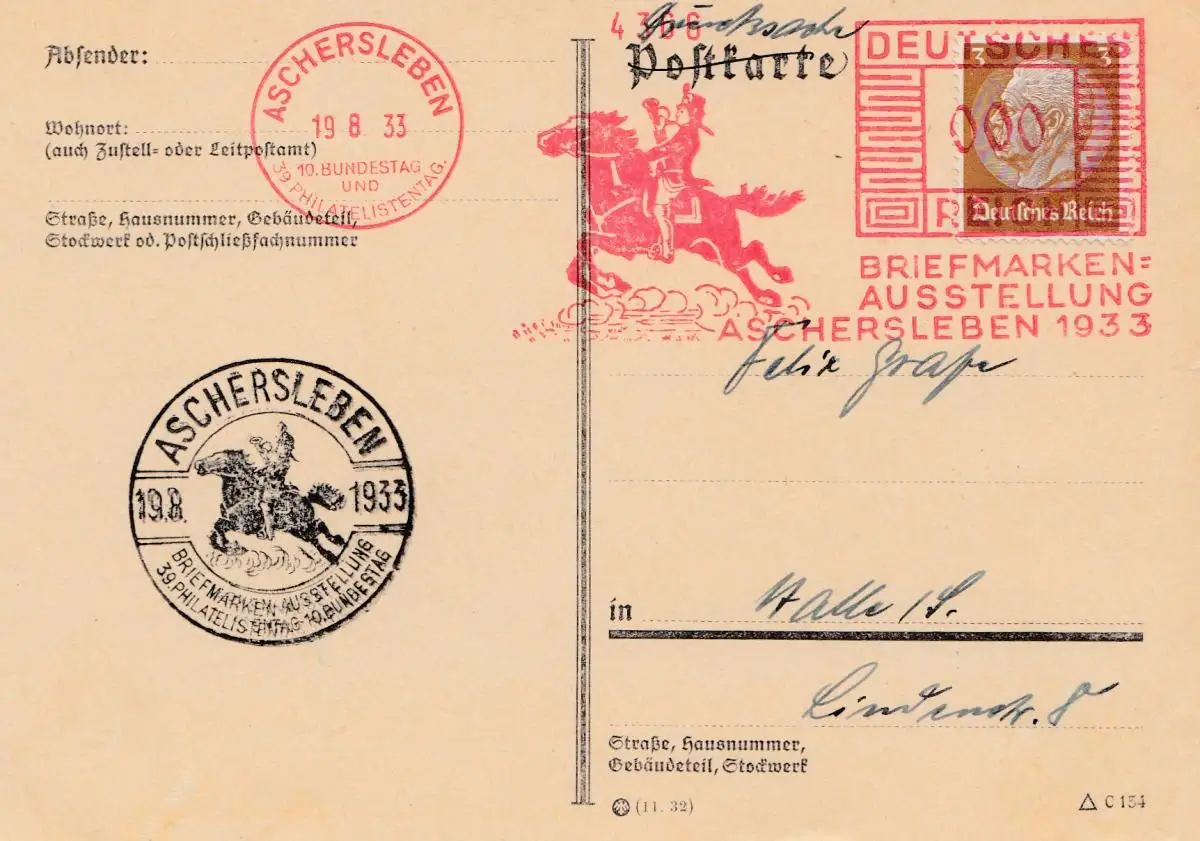 Absender:
Wohnort:
(auch Zustell- oder Leitpostamt)
Straße, Hausnummer, Gebäudeteil,
Stockwerk od. Postschließfachnummer
ASCHERSLEBEN
19 8 33
10. BUNDESTAG
UND
39 PHILATELISTENTAG.
Drucksache
Postkarte
DEUTSCHES
3 3
000
REICH
Deutsches Reich
BRIEFMARKEN=
AUSSTELLUNG
ASCHERSLEBEN 1933
ASCHERSLEBEN
19.8. 1933
BRIEFMARKEN-AUSSTELLUNG
39. PHILATELISTENTAG-10. BUNDESTAG
Felix Grape
in Halle /S.
Lindenstr. 8
Straße, Hausnummer,
Gebäudeteil, Stockwerk
(11. 32)
C 154